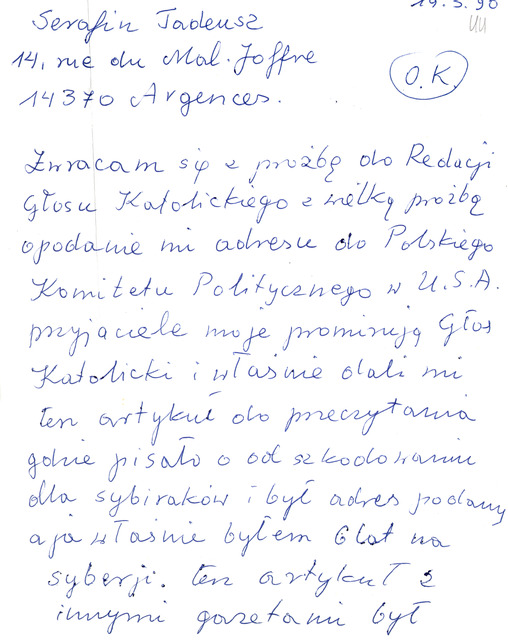 19.3.90
Serafin Tadeusz
14, rue du Mal. Joffre
14370 Argences.
O.K.
Zwracam się z proźbą do Redacji
Głosu Katolickiego z wielką proźbą
opodanie mi adresu do Polskiego
Komitetu Politycznego w U.S.A.
przyjaciele moje promirują Głos
Katolicki i właśnie dali mi
ten artykuł do przeczytania
gdzie pisało o od szkodowaniu
dla sybiraków i był adres podany
a ja właśnie byłem 6 lat na
syberji. ten artykuł z
innymi gazetami był